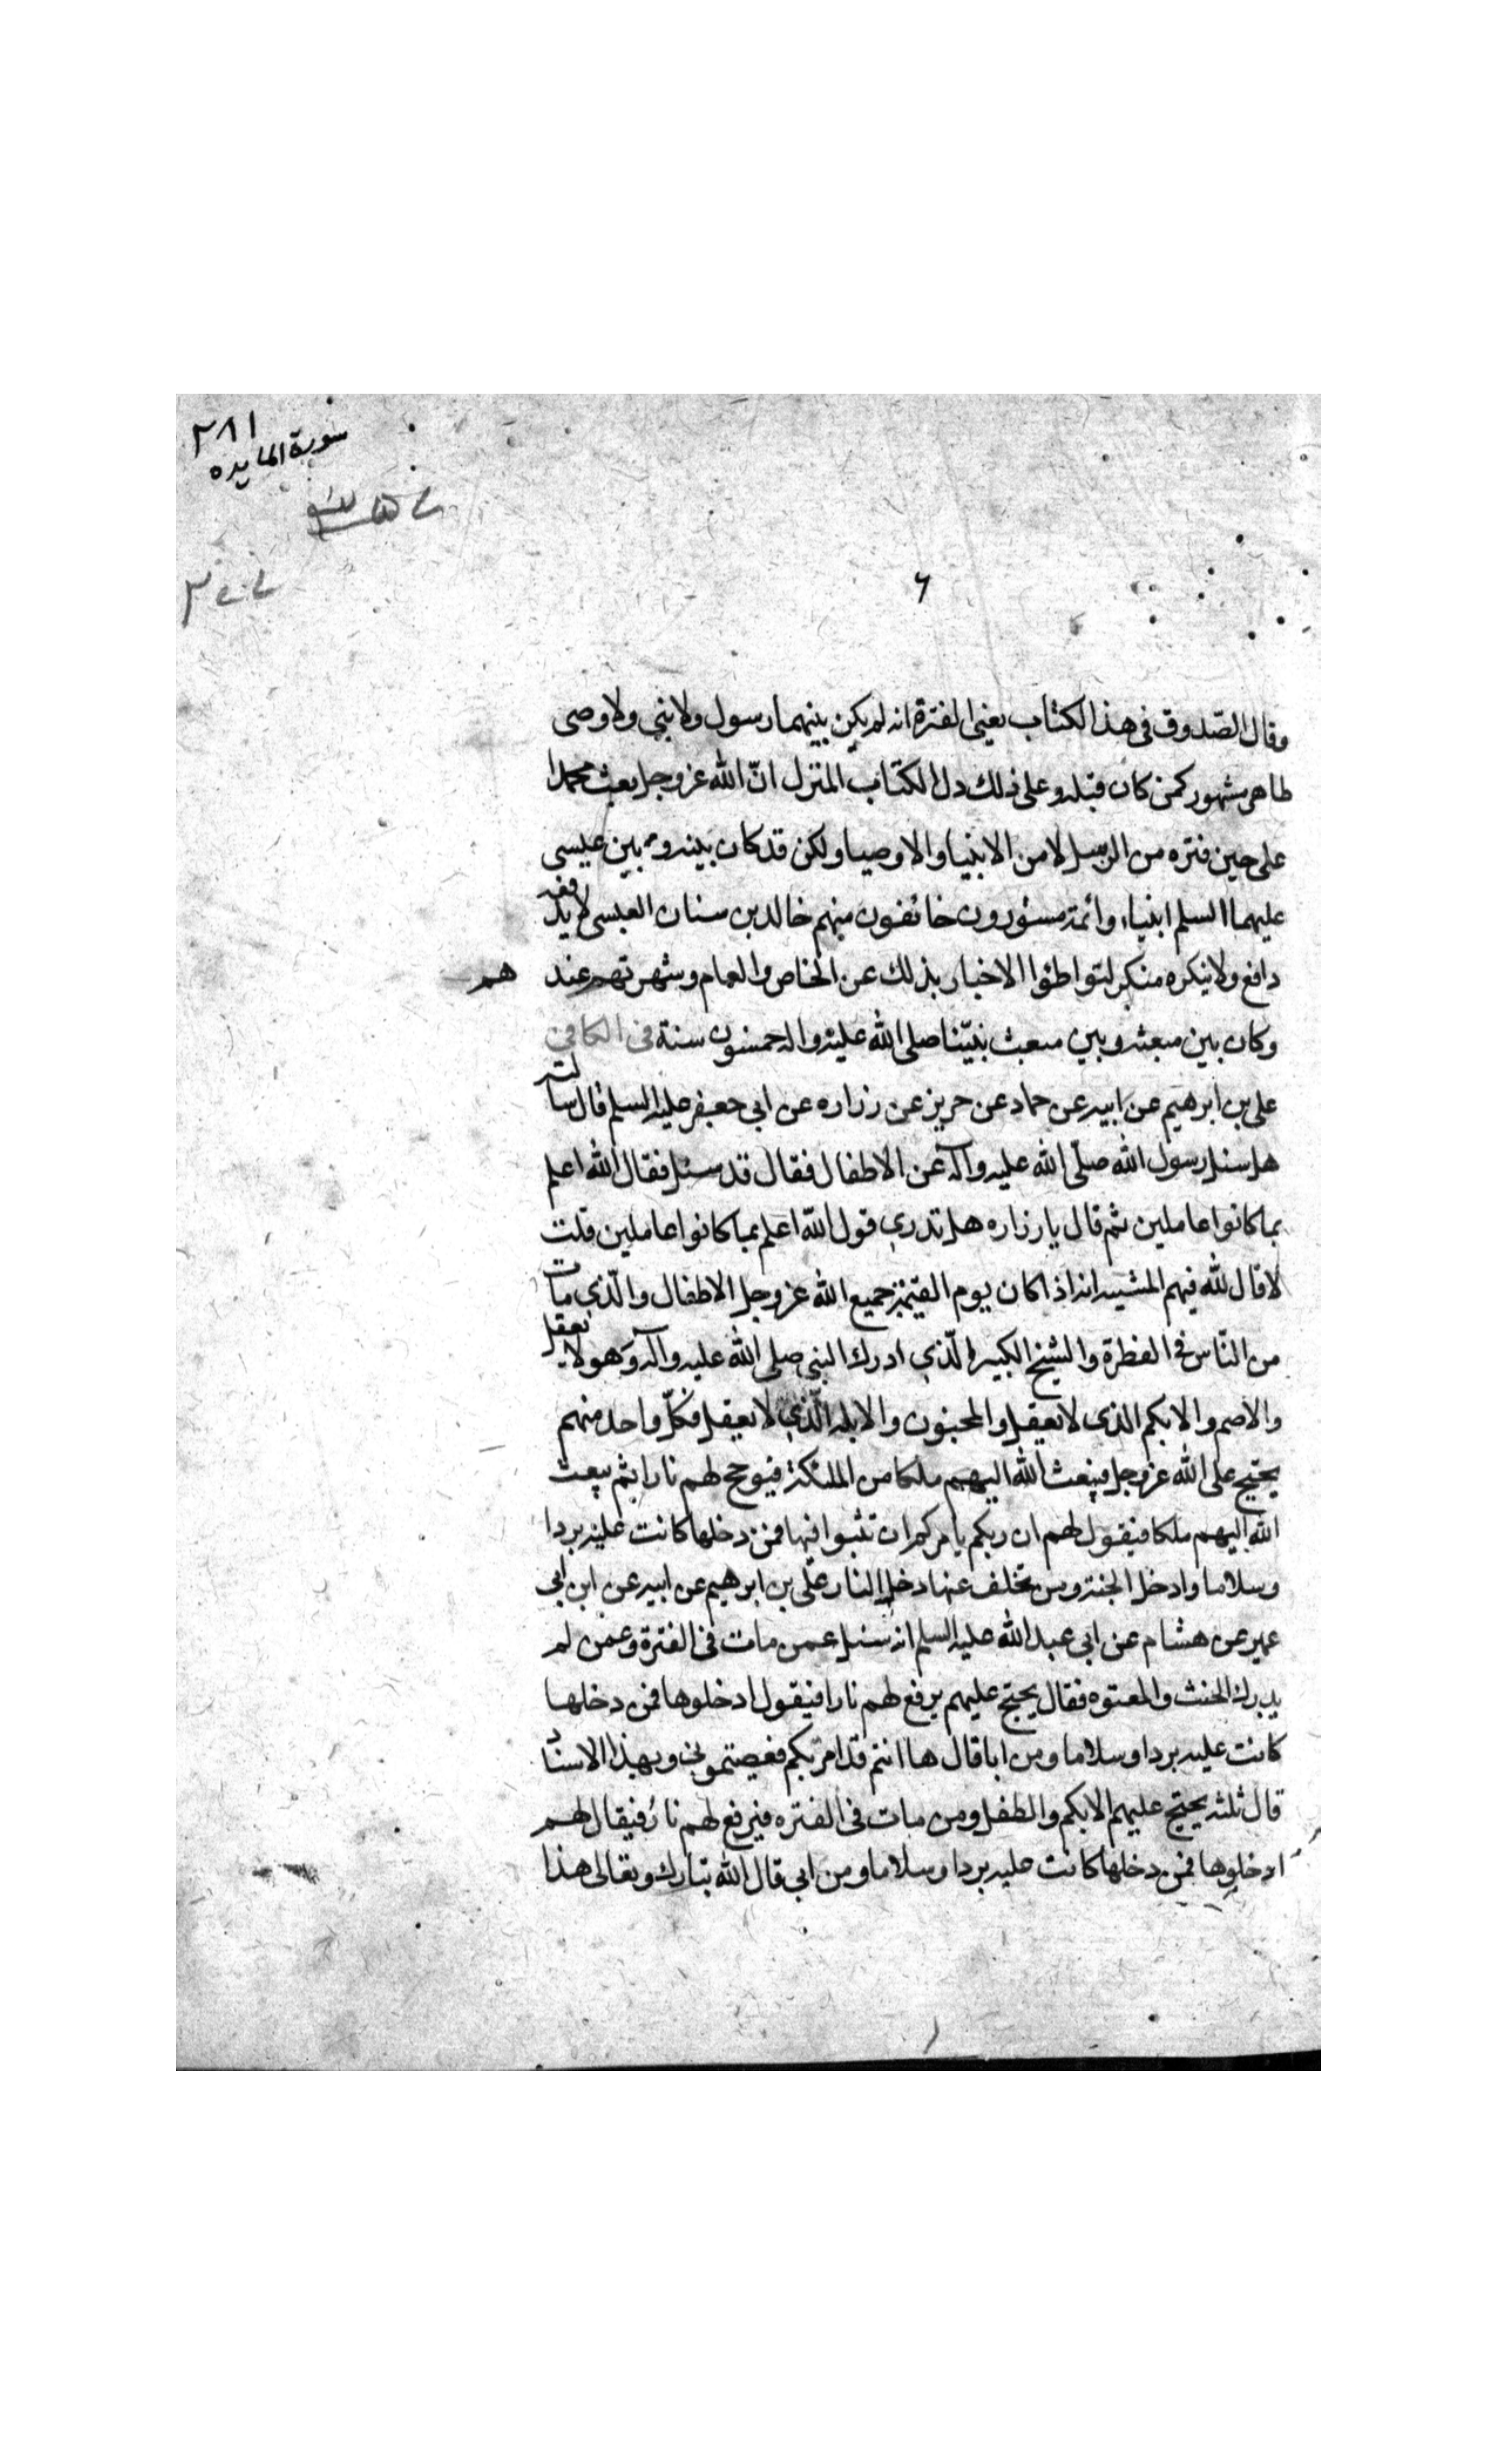 ٢٨١
سورة المايده
٦
وقال الصّدوق فى هذا الكتاب يعنى الفترة انه لم يكن بينهما رسول ولا نبى ولا وصى
ظاهر مشهور كمن كان قبله وعلى ذلك دل الكتاب المنزل انّ الله عز وجل بعث محمدا
على حين فتره من الرسل لا من الانبيا والاوصيا ولكن قد كان بينه وبين عيسى
عليهما السلم انبياء وائمة مستورون خائفون منهم خالد بن سنان العبسى لا يدفعه
دافع ولا ينكره منكر لتواطئوا الاخبار بذلك عن الخاص والعام وشهرته عندهم
وكان بين مبعثه وبين مبعث نبيّنا صلى الله عليه واله خمسون سنة فى الكافى
على بن ابرهيم عن ابيه عن حماد عن حريز عن زراره عن ابى جعفر عليه السلم قال سالته
هل سئل رسول الله صلّى الله عليه وآله عن الاطفال فقال قد سئل فقال الله اعلم
بما كانوا عاملين ثم قال يا زراره هل تدرى قول الله اعلم بما كانوا عاملين قلت
لا قال لله فيهم المشيه انه اذا كان يوم القيمة جميع الله عز وجل الاطفال والّذى مات
من النّاس فى الفطرة والشيخ الكبير الّذى ادرك النبى صلى الله عليه وآله وهو لا يعقل
والاصم والابكم الذى لا يعقل والمجنون والابله الّذى لا يعقل فكلّ واحد منهم
يحتج على الله عز وجل فيبعث الله اليهم ملكا من الملئكة فيوجج لهم نارا ثم يبعث
الله اليهم ملكا فيقول لهم ان ربكم يامركم ان تثبوا فيها فمن دخلها كانت عليه بردا
وسلاما وادخل الجنة ومن تخلف عنها دخل النار علّى بن ابرهيم عن ابيه عن ابن ابى
عمير عن هشام عن ابى عبد الله عليه السلم انه سئل عمن مات فى الفترة وعمن لم
يدرك الحنث والمعتوه فقال يحتج عليهم يرفع لهم نارا فيقول ادخلوها فمن دخلها
كانت عليه بردا وسلاما ومن ابا قال ها انتم قد امرتكم فعصيتمونى وبهذا الاسناد
قال ثلثه يحتج عليهم الابكم والطفل ومن مات فى الفتره فيرفع لهم نار فيقال لهم
ادخلوها فمن دخلها كانت عليه بردا وسلاما ومن ابى قال الله تبارك وتعالى هذا